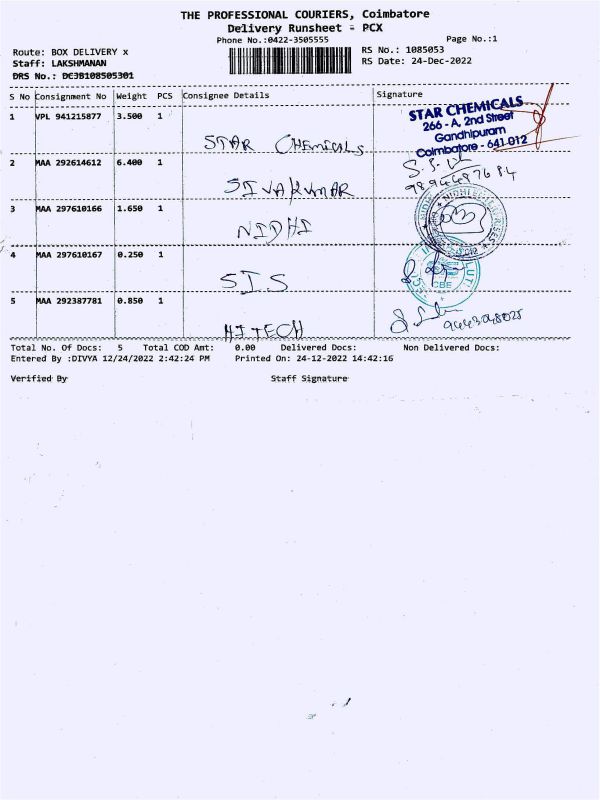 THE PROFESSIONAL COURIERS, Coimbatore
Delivery Runsheet - PCX
Phone No.:0422-3505555 Page No.:1
Route: BOX DELIVERY x RS No.: 1085053
Staff: LAKSHMANAN RS Date: 24-Dec-2022
DRS No.: DC3B108505301
S No Consignment No Weight PCS Consignee Details Signature
1 VPL 941215877 3.500 1
STAR CHEMICALS
STAR CHEMICALS
266 - A, 2nd Street
Gandhipuram
Coimbatore - 641 012
2 MAA 292614612 6.400 1
SIVAKUMAR
9894487684
3 MAA 297610166 1.650 1
NIDHI
4 MAA 297610167 0.250 1
SIS
CBE
5 MAA 292387781 0.850 1
HITECH
Total No. Of Docs: 5 Total COD Amt: 0.00 Delivered Docs: Non Delivered Docs:
Entered By :DIVYA 12/24/2022 2:42:24 PM Printed On: 24-12-2022 14:42:16
Verified By Staff Signature